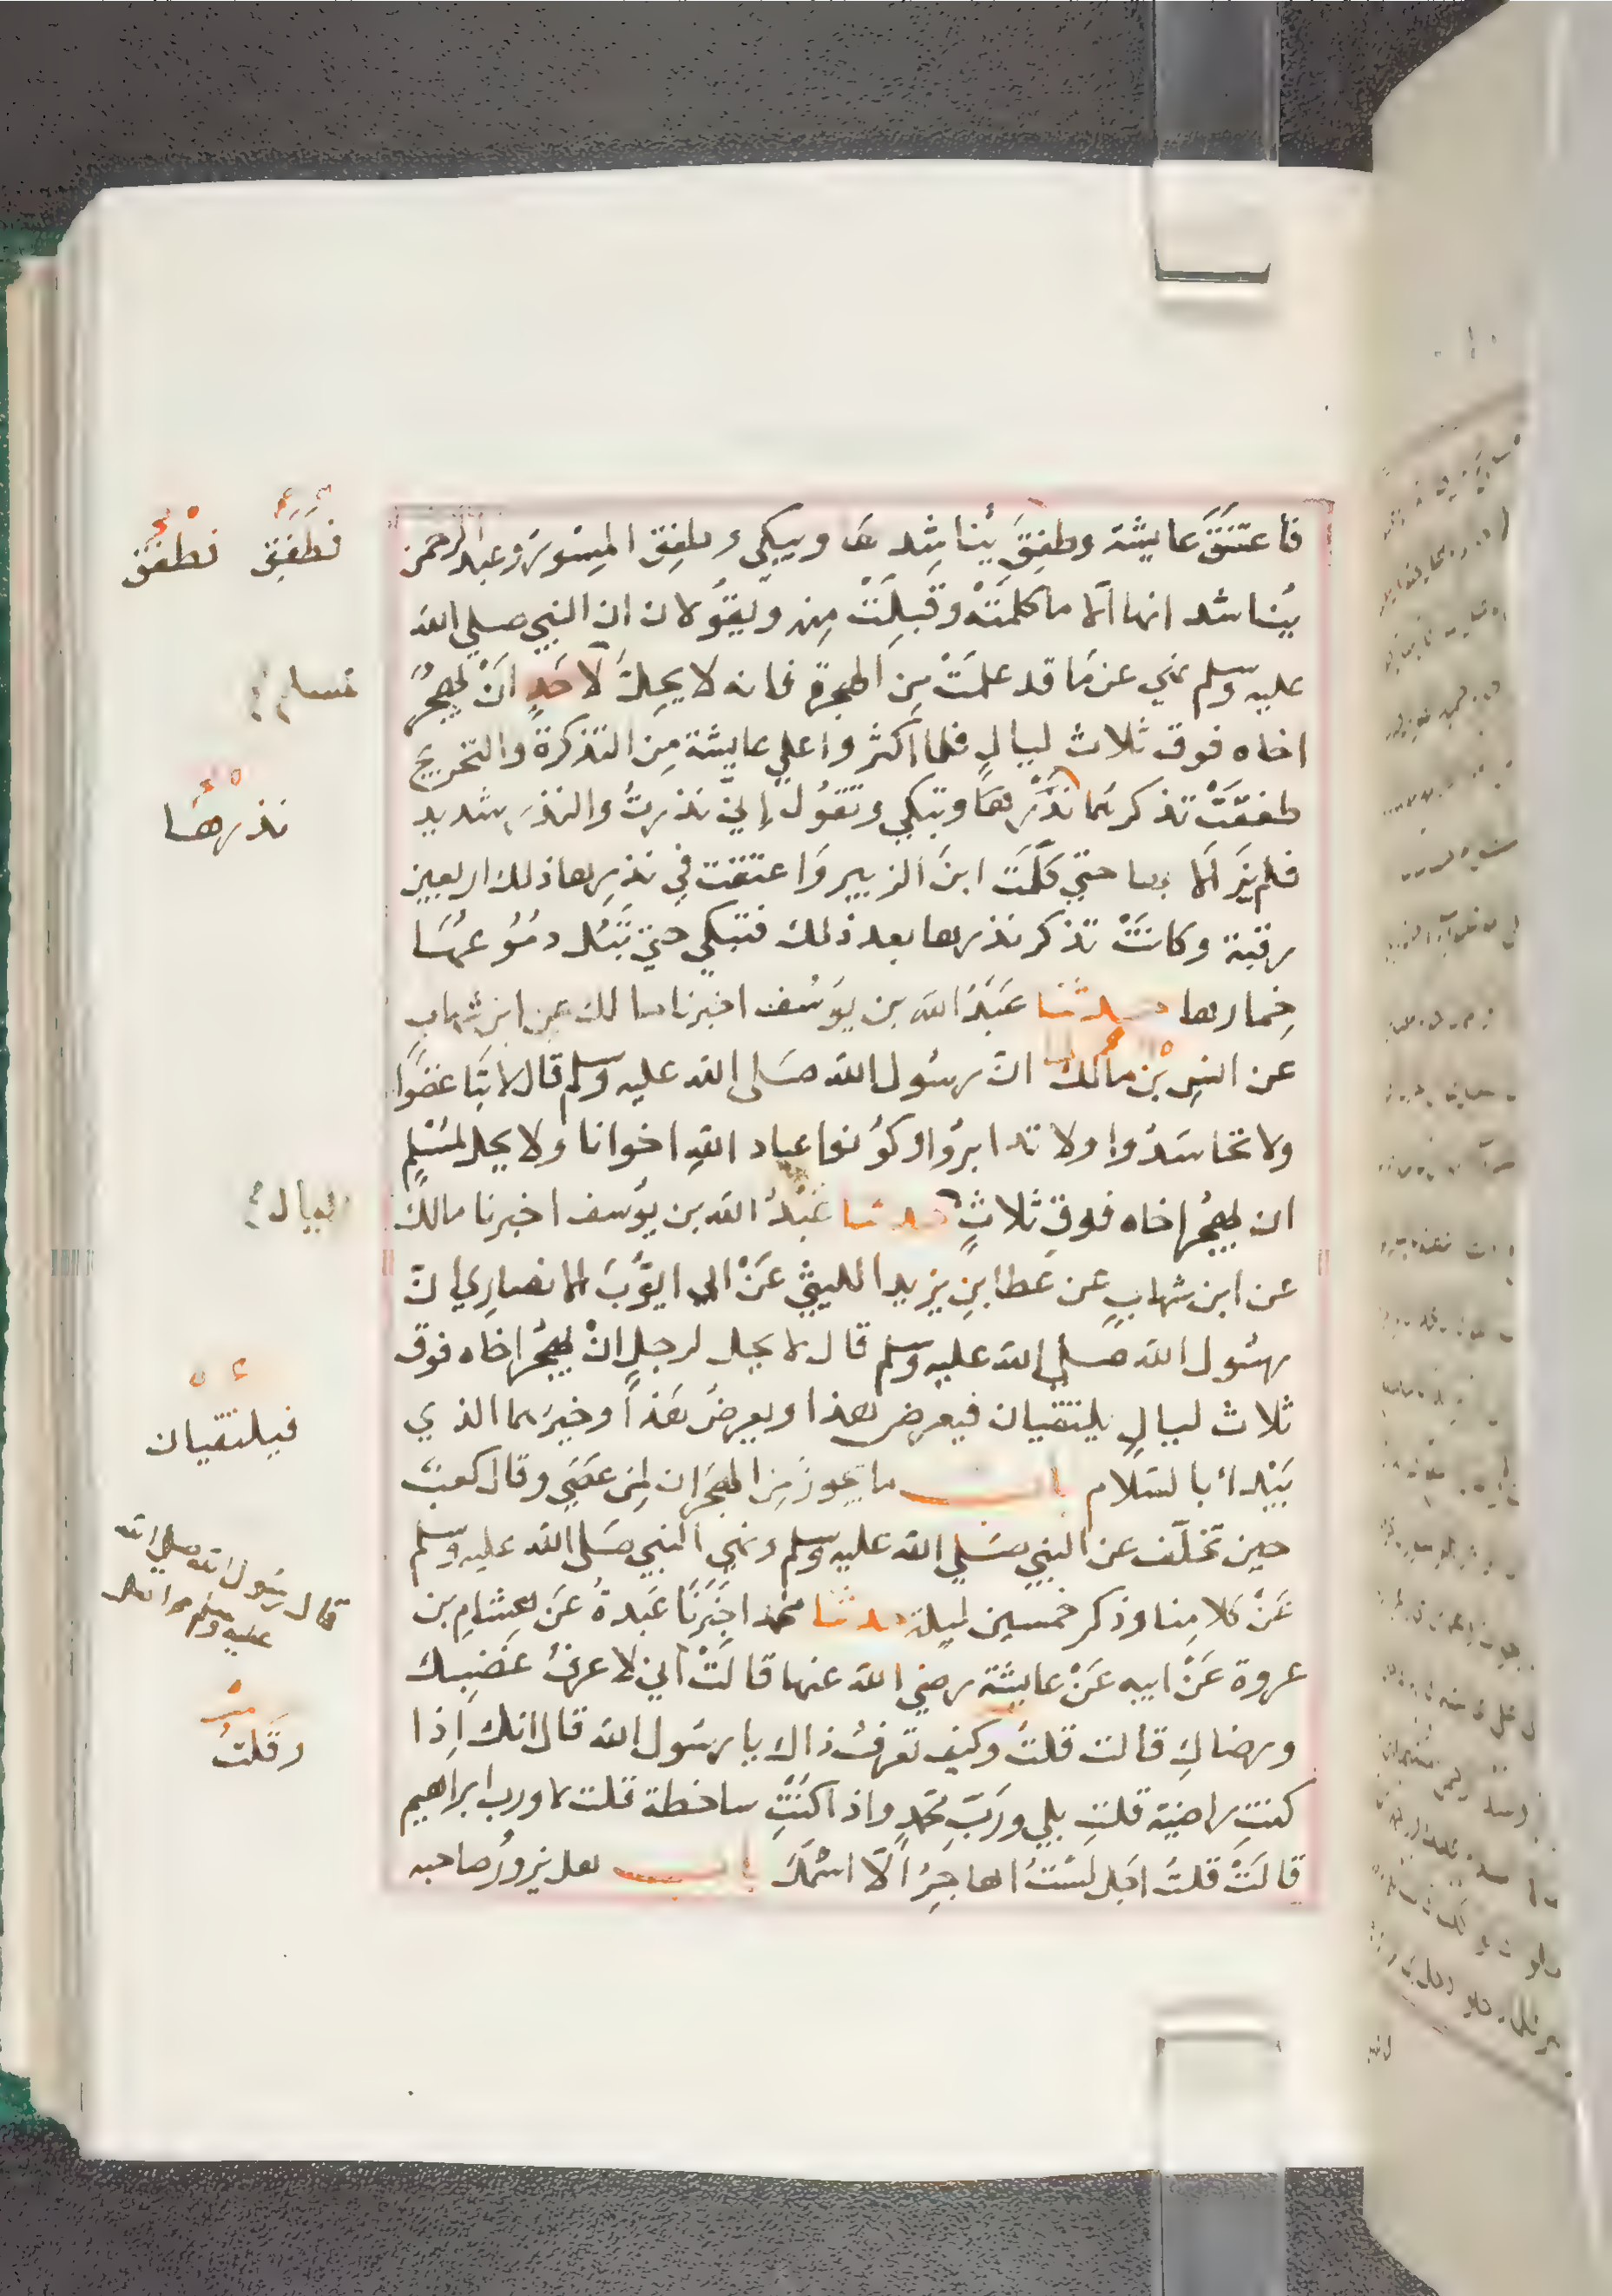 فاعتنَقَ عايشة وطفِقَ يُناشِدها ويبكِي وطفِق المِسْوَر وعبد الرحمن
يُناشدانها الا ما كلمتْه وقَبِلَتْ مِنه ويقولان ان النبي صلي الله
عليه وسلم نهي عن مَا قد علمَتْ مِن الهجرة فانه لا يحِلُّ لاحَدٍ انْ يهجُرَ
اخاه فوق ثلاث ليالٍ فلما اكثروا علي عايشة مِن التذكرة والتحريج
طفقَتْ تذكرهما نذْرها وتبكي وتقُول إني نذرتُ والنذر شديد
فلم يَزالا بها حتي كلَّمَت ابنَ الزبير وَاعتقت فِي نذرِها ذلك اربعين
رقبة وكانتْ تذكر نذرها بعد ذلك فتبكي حتي تَبُل دمُوعهَا
خِمارها حدثنا عَبْدُ الله بن يوسُف اخبرنا مالك عن ابن شهابٍ
عن انسِ بْن مالك انّ رسُول الله صَلى الله عليه وسلم قال لا تبَاغضُوا
ولا تحاسَدُوا ولا تدابرُوا وكوُنوا عباد اللهِ اخوانا ولا يحل لمسْلِمٍ
ان يهجُر اخاه فوق ثلاثٍ حدثنا عَبْدُ الله بن يوُسف اخبرنا مالكٌ
عن ابن شهابٍ عن عَطا بنِ يزيد الليثي عَنْ ابي ايوُّبَ الانصارِي انّ
رسُول الله صلي الله عليه وسلم قال لا يحل لرجلٍ انْ يهجُر اخاه فوق
ثلاث ليالٍ يلتقيان فيعرض هذا ويعرضُ هَذاَ وخيرُهما الذي
يَبْدا بالسَلام باب ما يجوزُ مِن الهجَران لِمن عَصَي وقال كعبٌ
حين تخلّف عن النبي صَلي الله عليه وسلم ونهي النبي صَلي الله عليه وسلم
عَنْ كلامِنا وذكر خمسين ليلة حدثنا محمد اخبَرنَا عَبدةُ عَن هِشامِ بن
عروة عَنْ ابيه عَنْ عايشة رضي الله عنها قالَتْ اني لاعرفُ غضبك
ورضاكِ قالت قلتُ وكيف تعرفُ ذاك يا رسُول الله قال انك اِذا
كنتِ راضية قلتِ بلي ورَبِّ محمدٍ واذا كنتِ ساخطة قلت لا ورب ابراهيم
قالَتْ قلتُ اجَل لسْتُ اهاجِرُ اِلّا اسْمَكَ باب هل يزورُ صاحبه
فطَفِقَ فطفقَتْ
نذرهَا
ليال
فيلتقيان
قال رسُول الله صلي الله
عليه وسلم
وقَلتُ